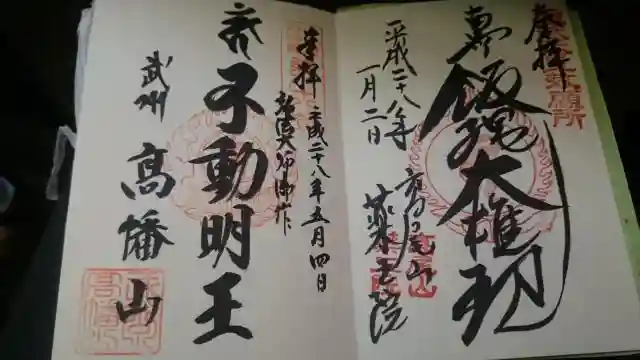 奉拝
飯縄大権現
平成二八年
一月二日
高尾山
薬王院
奉拝
平成二十八年五月四日
不動明王
武州
高幡山